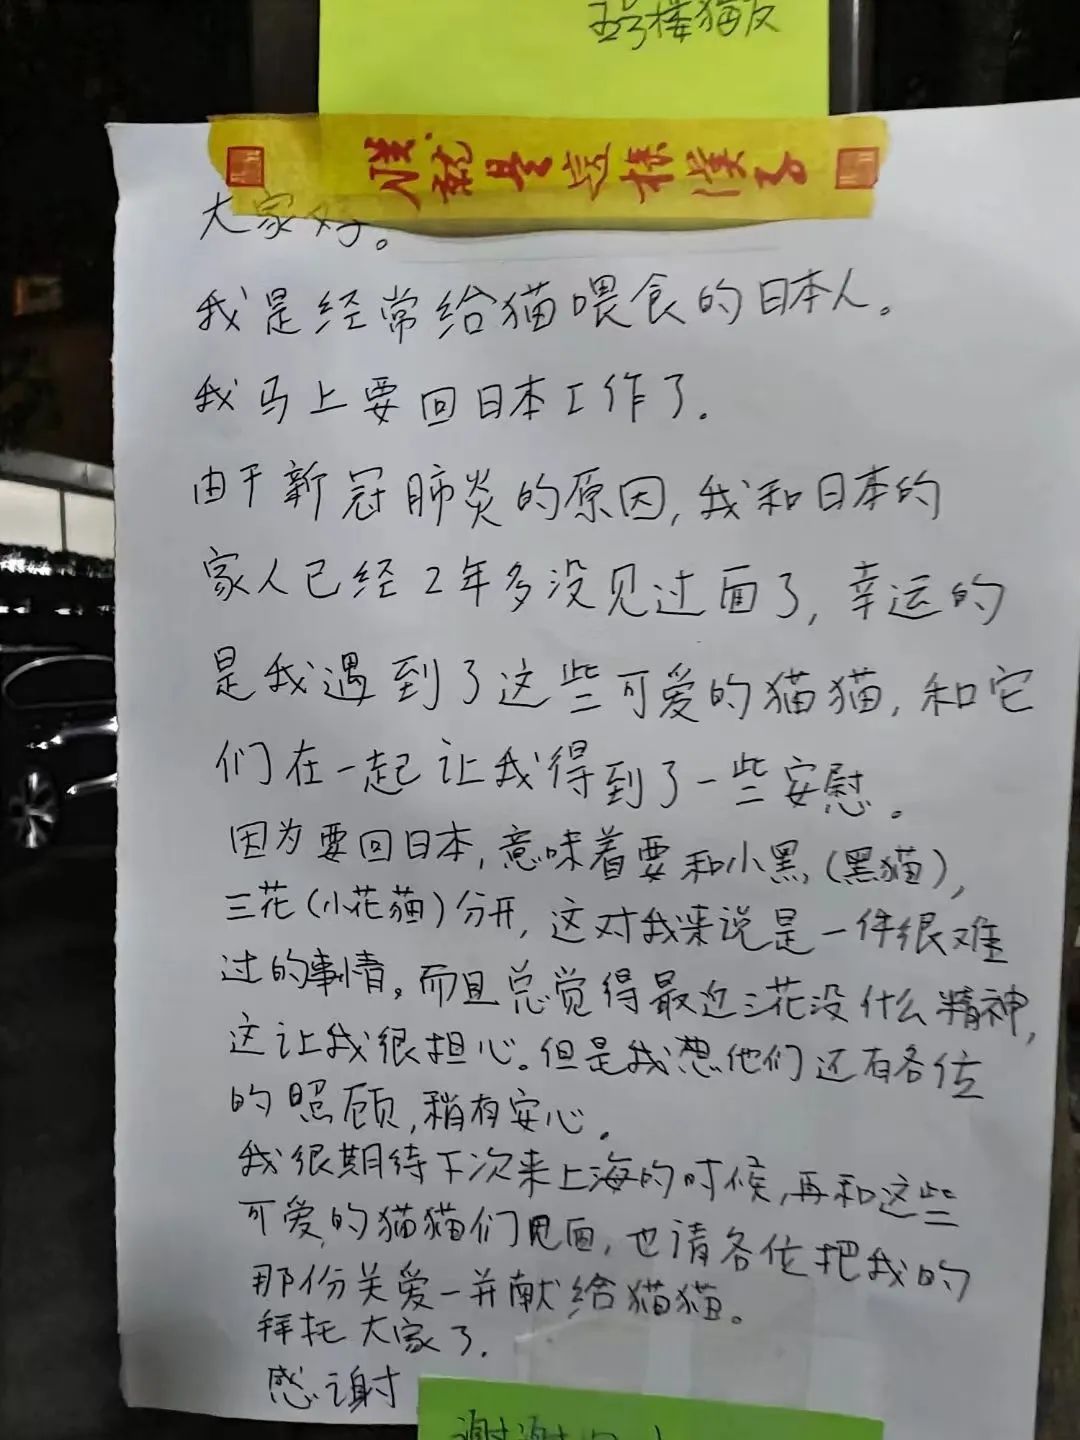 五号楼猫友
大家好。
我是经常给猫喂食的日本人。
我马上要回日本工作了.
由于新冠肺炎的原因,我和日本的
家人已经2年多没见过面了,幸运的
是我遇到了这些可爱的猫猫,和它
们在一起让我得到了一些安慰。
因为要回日本,意味着要和小黑(黑猫),
三花(小花猫)分开,这对我来说是一件很难
过的事情。而且总觉得最近三花没什么精神,
这让我很担心。但是我想他们还有各位
的照顾,稍有安心。
我很期待下次来上海的时候,再和这些
可爱的猫猫们见面,也请各位把我的
那份关爱一并献给猫猫。
拜托大家了.
感谢
谢谢